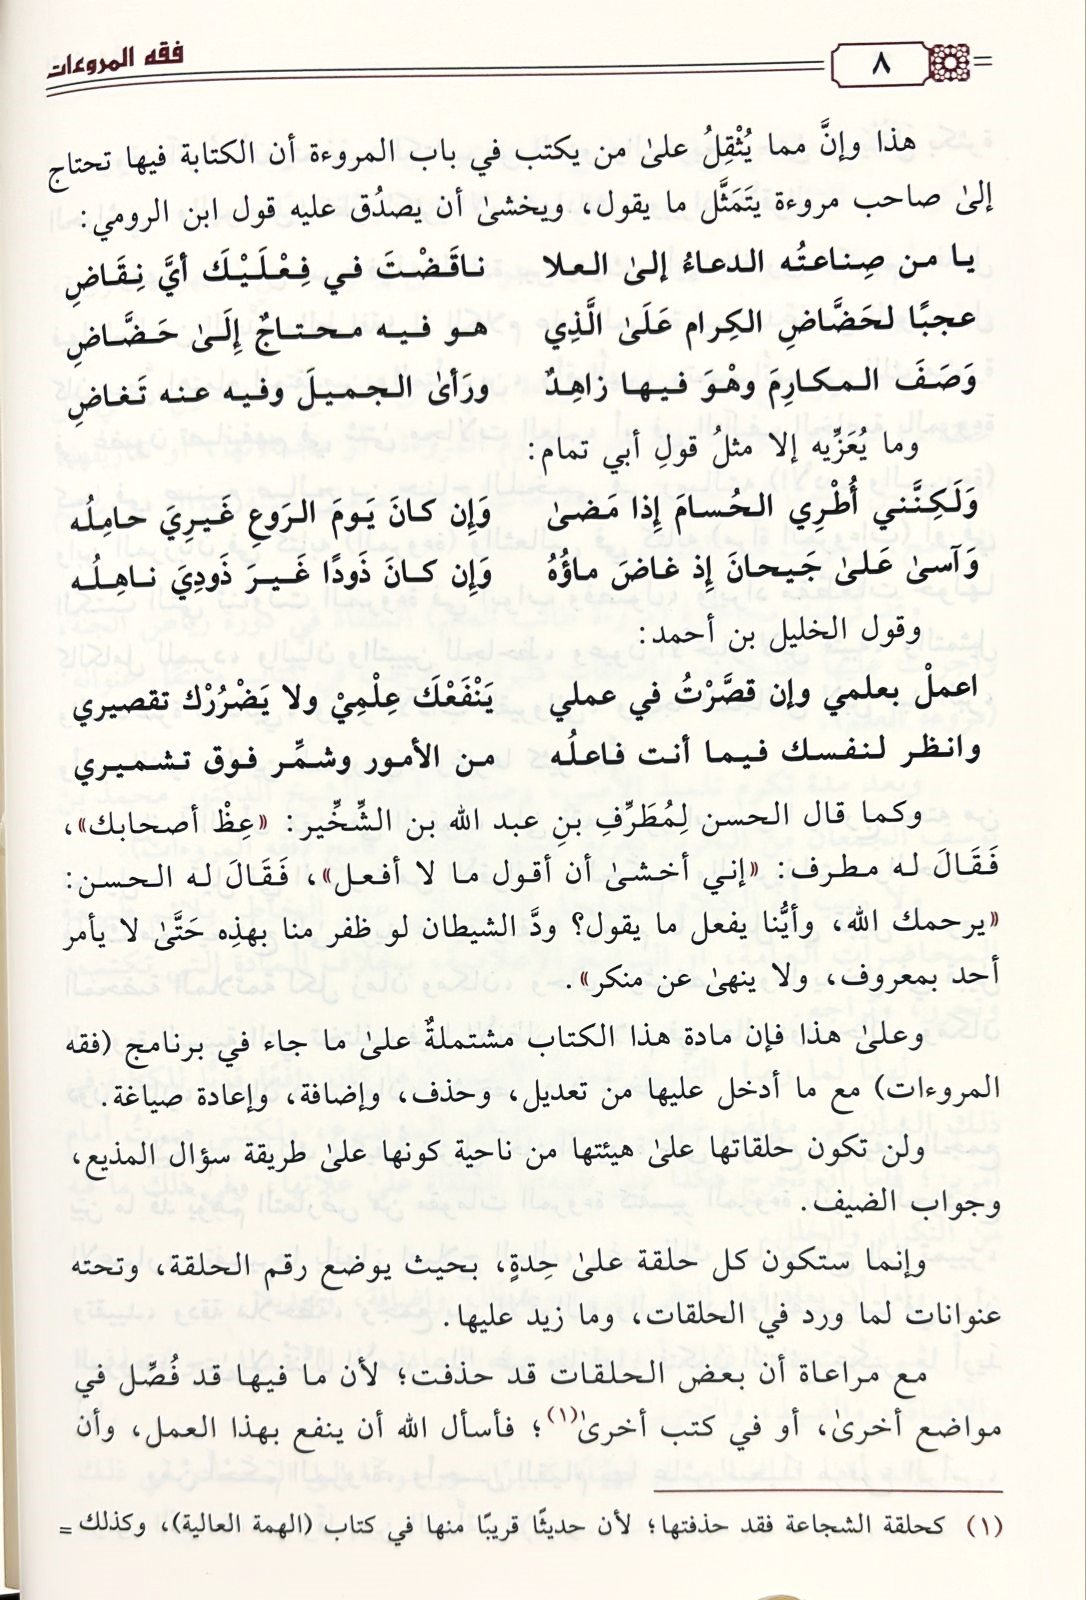 فقه المروءات
٨
هذا وإنَّ مما يُثْقِلُ علىٰ من يكتب في باب المروءة أن الكتابة فيها تحتاج
إلىٰ صاحب مروءة يتَمَثَّل ما يقول، ويخشىٰ أن يصدُق عليه قول ابن الرومي:
يا من صِناعتُه الدعاءُ إلىٰ العلا ناقَضْتَ في فِعْلَيْكَ أيَّ نِقَاضِ
عجبًا لحَضَّاضِ الكِرام عَلَىٰ الَّذِي هو فيه محتاجٌ إِلَىٰ حَضَّاضِ
وَصَفَ المكارِمَ وهْوَ فيها زاهِدٌ ورَأىٰ الجميلَ وفيه عنه تَغاضِ
وما يُعَزِّيه إلا مثلُ قولِ أبي تمام:
وَلَكِنَّني أُطْرِي الحُسامَ إِذا مَضىٰ وَإِن كانَ يَومَ الرَوعِ غَيرِيَ حامِلُه
وَآسىٰ عَلىٰ جَيحانَ إِذ غاضَ ماؤُهُ وَإِن كانَ ذَودًا غَيرَ ذَودِيَ ناهِلُه
وقول الخليل بن أحمد:
اعملْ بعلمي وإن قصَّرْتُ في عملي يَنْفَعْكَ عِلْمِيْ ولا يَضْرُرْك تقصيري
وانظر لنفسك فيما أنت فاعلُه من الأمور وشمِّر فوق تشميري
وكما قال الحسن لِمُطَرِّفِ بنِ عبد الله بن الشِّخِّير: «عِظْ أصحابك»،
فَقَالَ له مطرف: «إني أخشىٰ أن أقول ما لا أفعل»، فَقَالَ له الحسن:
«يرحمك الله، وأيُّنا يفعل ما يقول؟ ودَّ الشيطان لو ظفر منا بهذِه حَتَّىٰ لا يأمر
أحد بمعروف، ولا ينهىٰ عن منكر».
وعلىٰ هذا فإن مادة هذا الكتاب مشتملةٌ علىٰ ما جاء في برنامج (فقه
المروءات) مع ما أدخل عليها من تعديل، وحذف، وإضافة، وإعادة صياغة.
ولن تكون حلقاتها علىٰ هيئتها من ناحية كونها علىٰ طريقة سؤال المذيع،
وجواب الضيف.
وإنما ستكون كل حلقة علىٰ حِدةٍ، بحيث يوضع رقم الحلقة، وتحته
عنوانات لما ورد في الحلقات، وما زيد عليها.
مع مراعاة أن بعض الحلقات قد حذفت؛ لأن ما فيها قد فُصِّل في
مواضع أخرىٰ، أو في كتب أخرىٰ(١)؛ فأسأل الله أن ينفع بهذا العمل، وأن
(١) كحلقة الشجاعة فقد حذفتها؛ لأن حديثًا قريبًا منها في كتاب (الهمة العالية)، وكذلك =